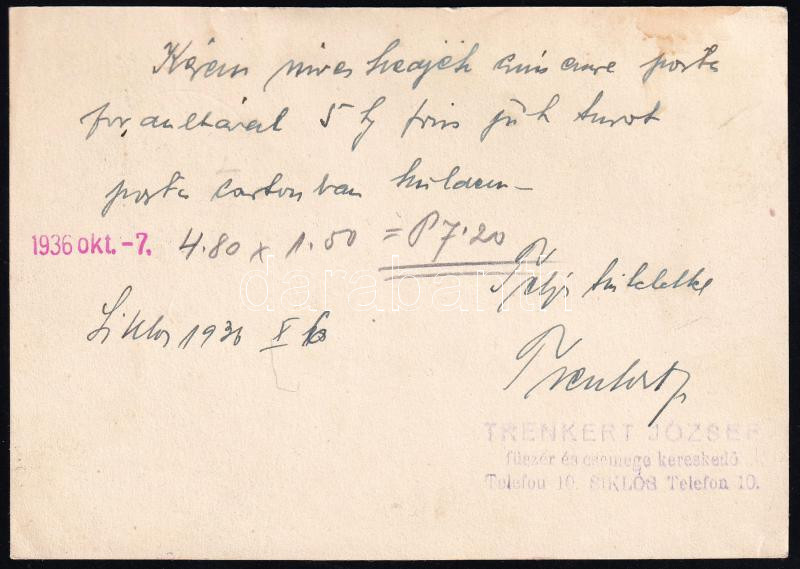 Kérem szíveskedjék címemre posta
fordultával 5 kg friss juh turót
posta cartonban küldeni –
1936 okt. -7. 4.80 x 1.50 = P 7.20
Siklós 1936 X
Trenkert J
TRENKERT JÓZSEF
fűszer és csemege kereskedő
Telefon 10. SIKLÓS Telefon 10.
darabanth